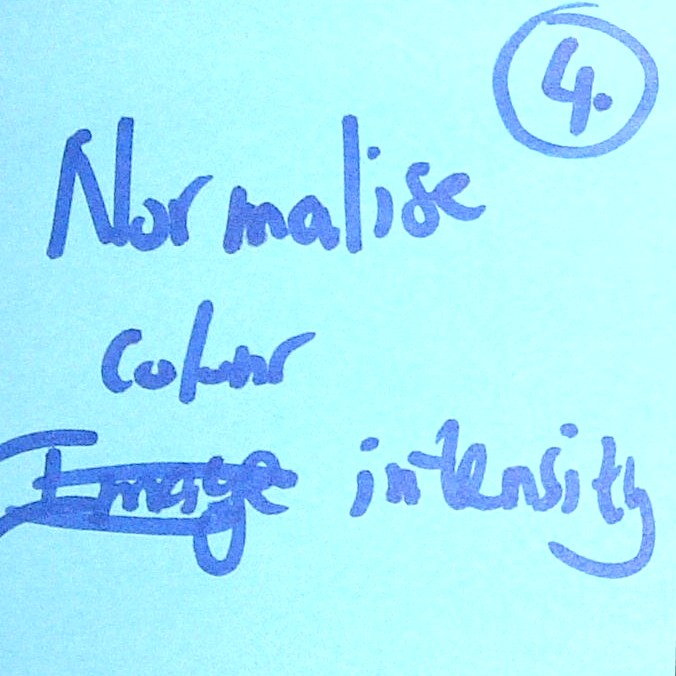 4.
Normalise
colour
Image intensity